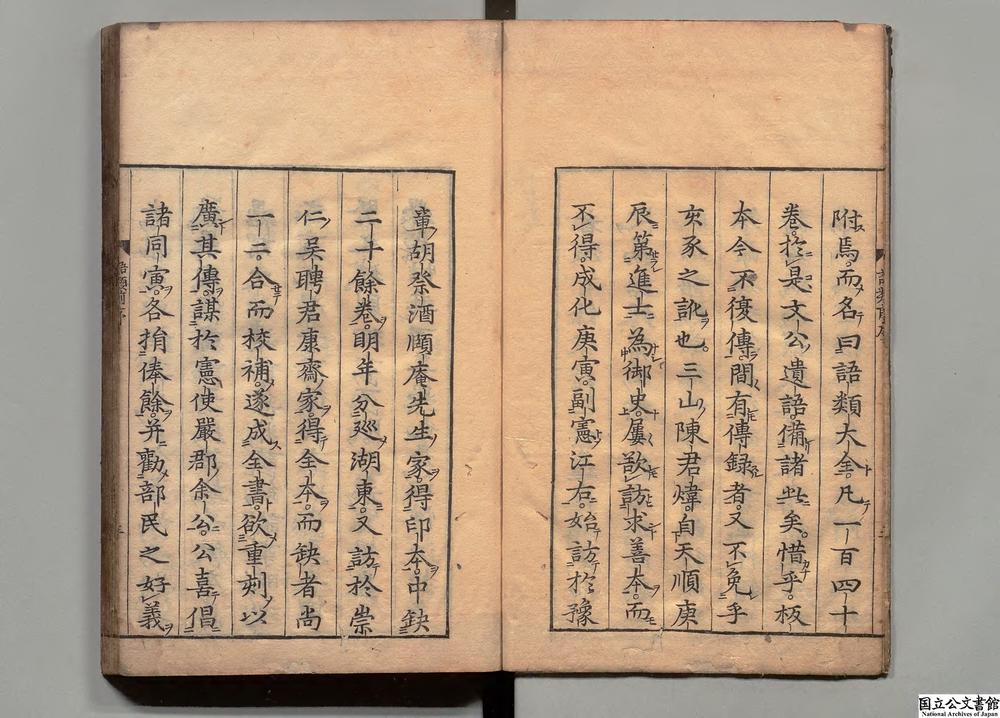 附焉而名曰語類大全凡一百四十
卷於是文公遺語備諸此矣惜乎板
本今不復傳間有傳録者又不免乎
亥豕之訛也三山陳君煒自天順庚
辰第進士為御史屢欲訪求善本而
不得成化庚寅副憲江右始訪於豫
章胡祭酒頤庵先生家得印本中缺
二十餘卷明年分廵湖東又訪於崇
仁吳聘君康齋家得全本而缺者尚
一二合而校補遂成全書欲重刻以
廣其傳謀於憲使嚴郡余公公喜倡
諸同寅各捐俸餘并勸部民之好義
国立公文書館
National Archives of Japan